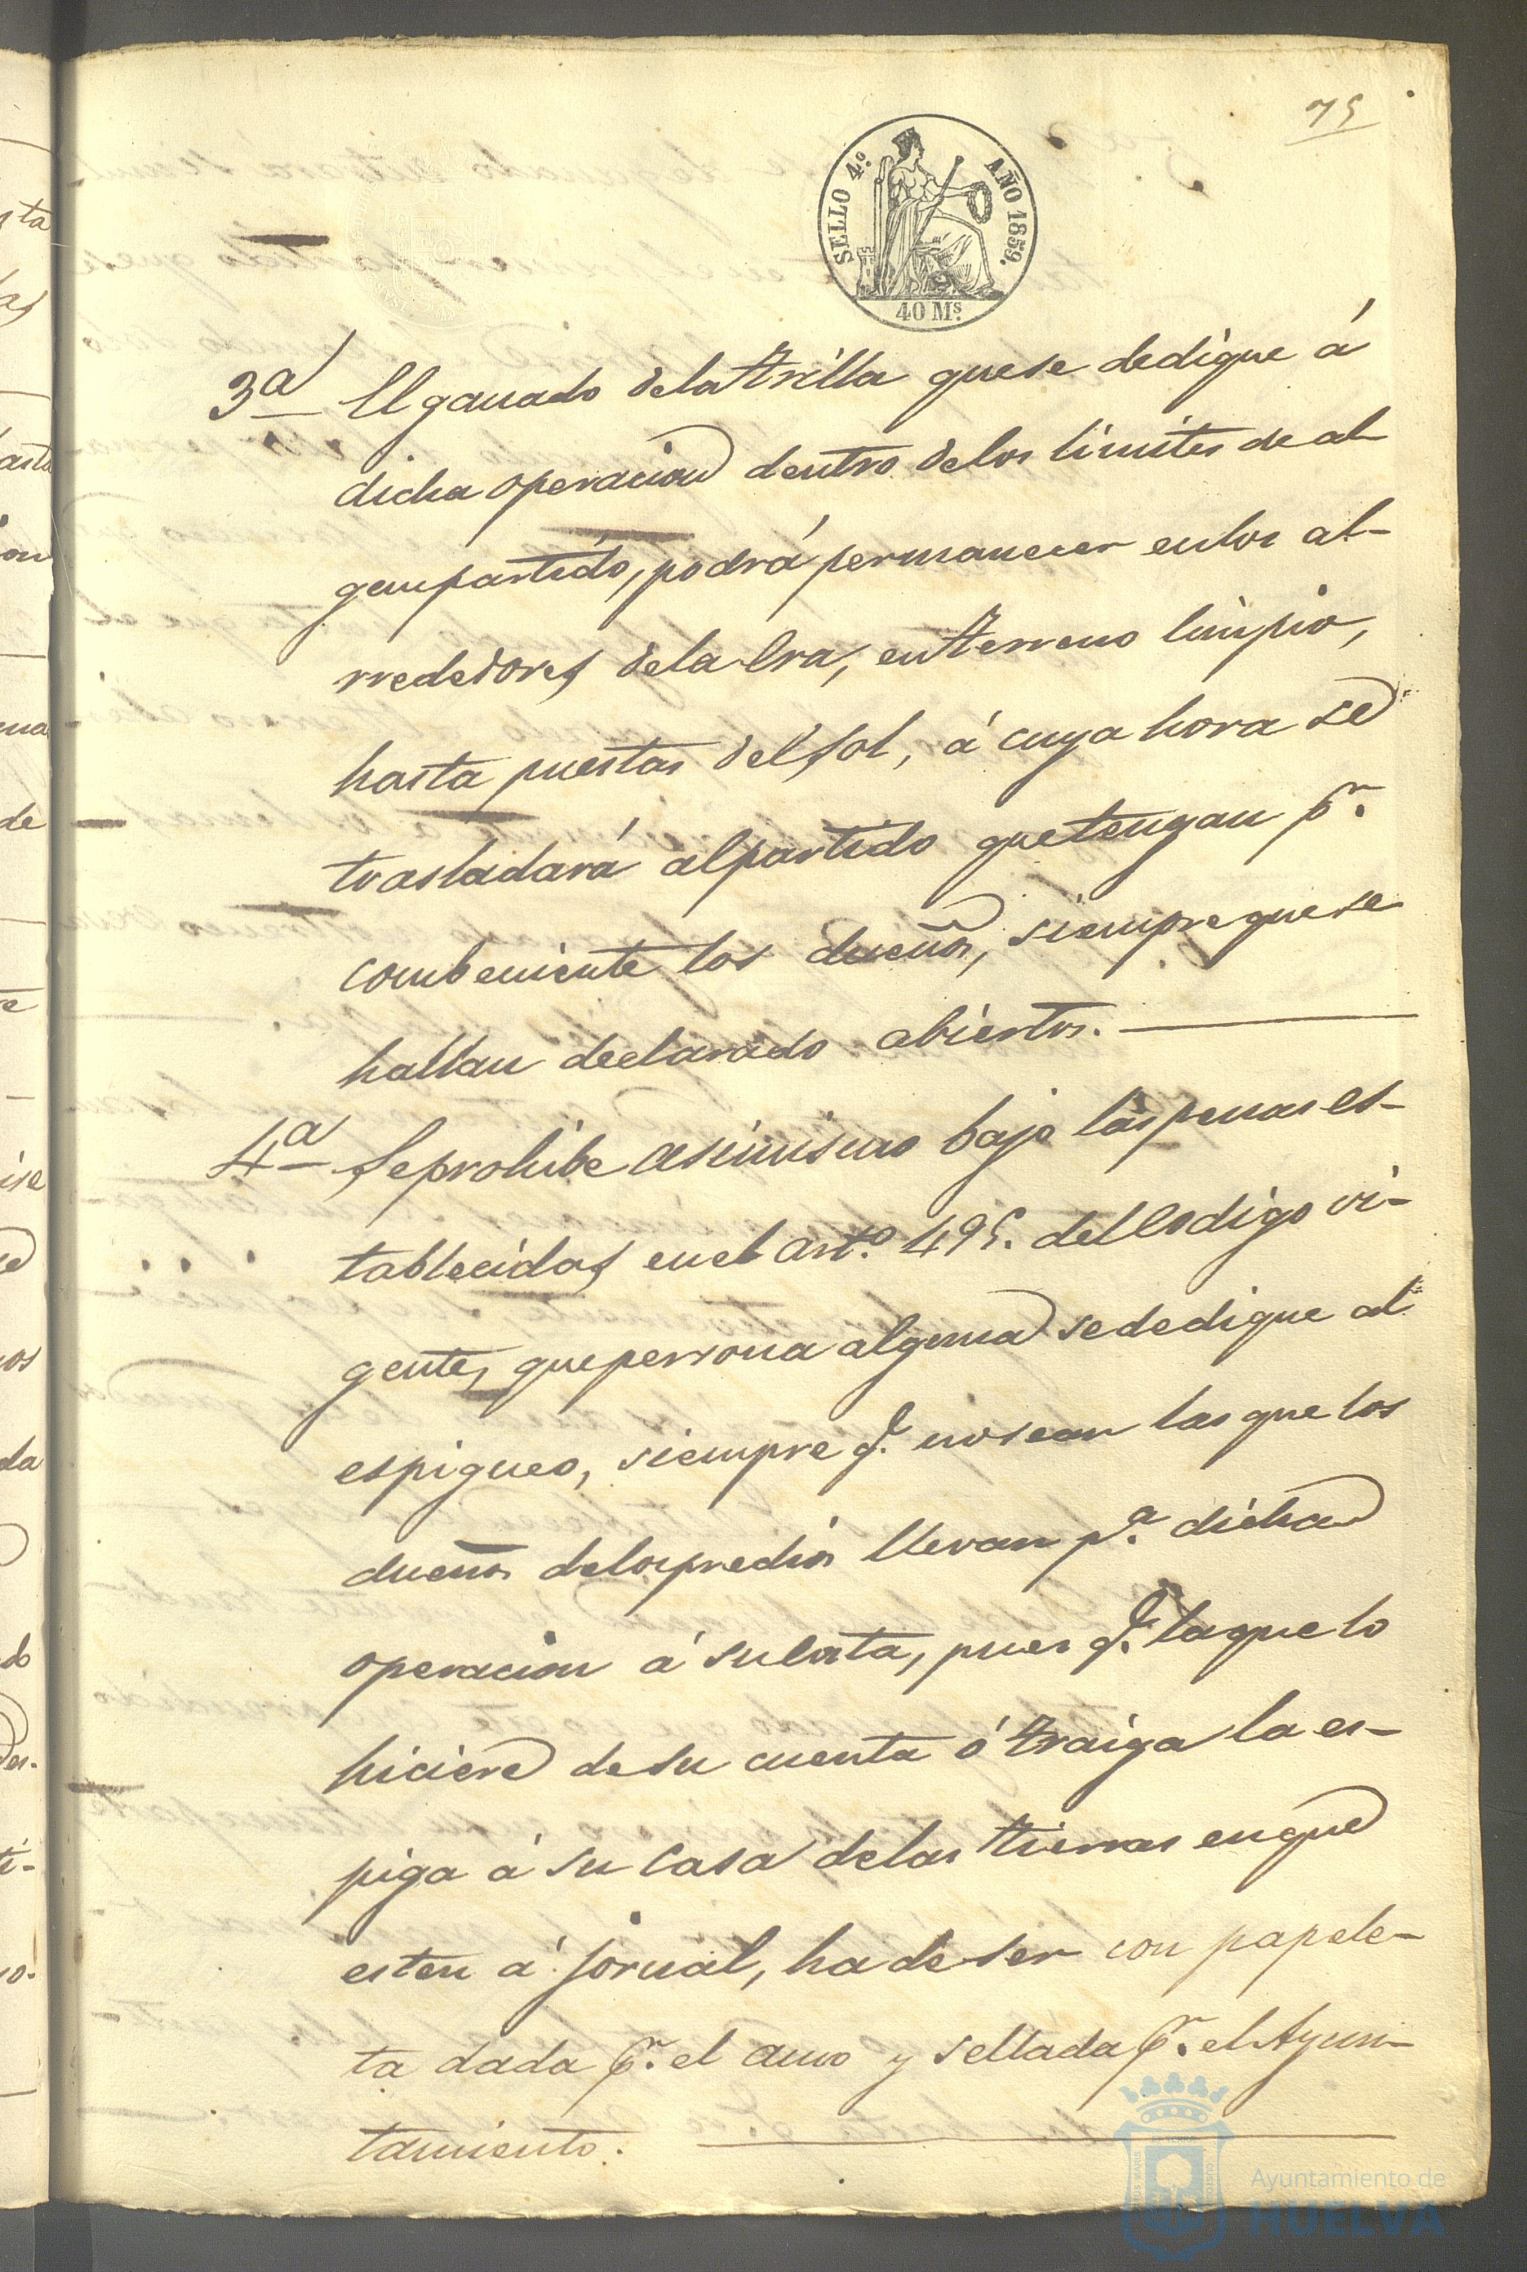 75
SELLO 4.º AÑO 1859.
40 Ms.
3ª El ganado de la trilla que se dedique á
dicha operacion dentro de los limites de al-
gun partido, podrá permanecer en los al-
rrededores de la Era, en terreno limpio,
hasta puestas del sol, á cuya hora se
trasladará al partido que tengan pr.
combeniente los dueños, siempre que se
hallan declarado abiertos.
4ª Se prohibe asimismo bajo las penas es-
tablecidas en el arto. 495. del Codigo vi-
gente, que persona alguna se dedique al
espigueo, siempre q. no sean las que los
dueños de los predios llevan pa. dicha
operacion á su costa, pues q. la que lo
hiciere de su cuenta ó traiga la es-
piga á su casa de las tierras en que
esten á jornal, ha de ser con papele-
ta dada pr. el amo y sellada pr. el Ayun-
tamiento.
Ayuntamiento de
HUELVA